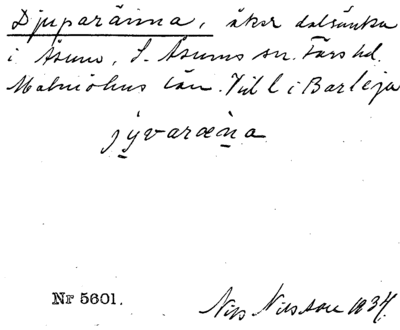 Djuparänna, åker dalsänka
i Åsum, S. Åsums sn. Färs hd.
Malmöhus län. Till i Barleja
jyvaræna
Nr 5601.
Nils Nilsson 1934.